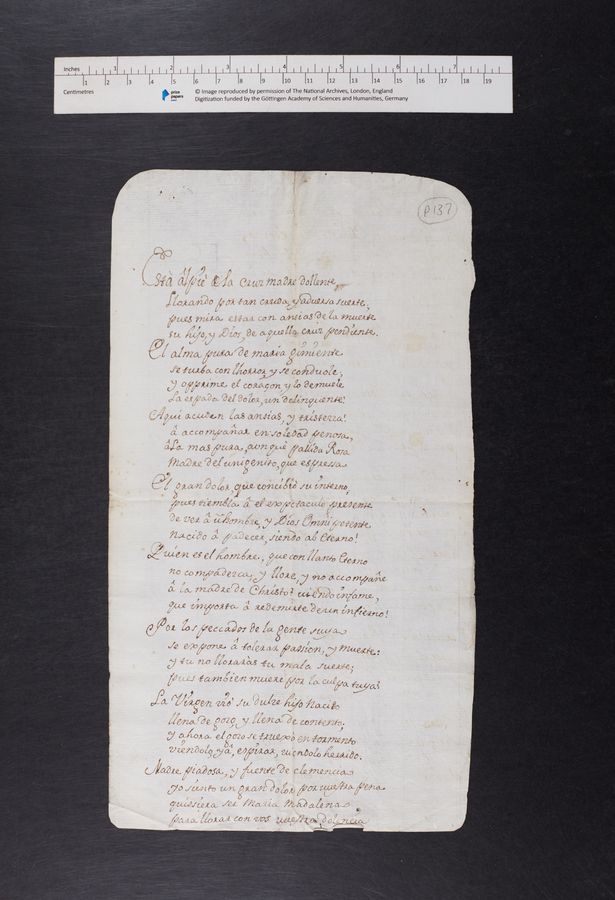 Inches 1 2 3 4 5 6 7
1 2 3 4 5 6 7 8 9 10 11 12 13 14 15 16 17 18 19
Centimetres
prize papers
© Image reproduced by permission of The National Archives, London, England
Digitization funded by the Göttingen Academy of Sciences and Humanities, Germany
P 137
Està âl piè de la Cruz madre dollente
llorando por tan cruda, y adversa suerte;
pues mira estar con ansias de la muerte
su hijo, y Dios, de aquella cruz pendiente.
El alma pura de maria gimiente
se turba con llorroz y se conduole;
y opprime el coraçon y lo demuele
la espada del dolor, un delinquente!
Aqui acuden las ansias, y tristezza!
â accompañar en soledad penosa,
âla mas pura, aunque pallida Rosa
Madre del unigenito, que espressa
El gran dolor que concibiò su interno,
pues tiembla â el expectaculo presente
de ver â ũ hombre, y Dios Omnipotente
nacido â padecer, siendo ab Eterno!
Quien es el hombre, que con llanto Eterno
no compadezca, y llore, y no accompañe
â la madre de Christo? viendo infame,
que importa â redemirte de un infierno!
Por los peccados de la gente suya
se expone â tolerar passion, y muerte:
y tu no lloraràs tu mala suerte;
pues tambien muere por la culpa tuya?
La Virgen viò su dulce hijo Nacido
llena de gozo, y llena de contento;
y ahora el gozo se truexo en tormento
viendolo, yâ, espirar, viendolo herrido.
Madre piadosa, y fuente de clemencia
yo siento un gran dolor, por vuestra pena
quisiera ser Maria Madalena
para llorar con vos vuestra dolencia